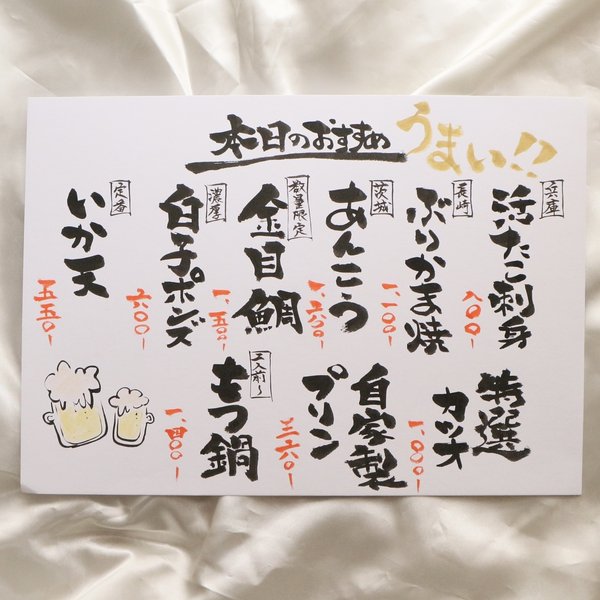 本日のおすすめ
うまい!!
兵庫
活たこ刺身
八〇〇-
長崎
ぶりかま焼
一、一〇〇-
茨城
あんこう
一、二六〇-
数量限定
金目鯛
一、五〇〇-
濃厚
白子ポンズ
六〇〇-
定番
いか天
五五〇-
特選
カツオ
一、〇〇〇-
自家製
プリン
三六〇-
二人前〜
もつ鍋
一、四〇〇-